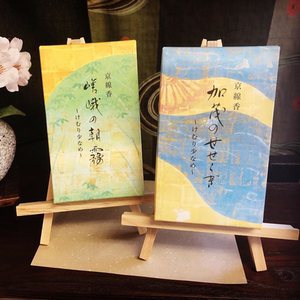 京線香
嵯峨の朝霧
~けむり少なめ~
京線香
加茂のせせらぎ
~けむり少なめ~